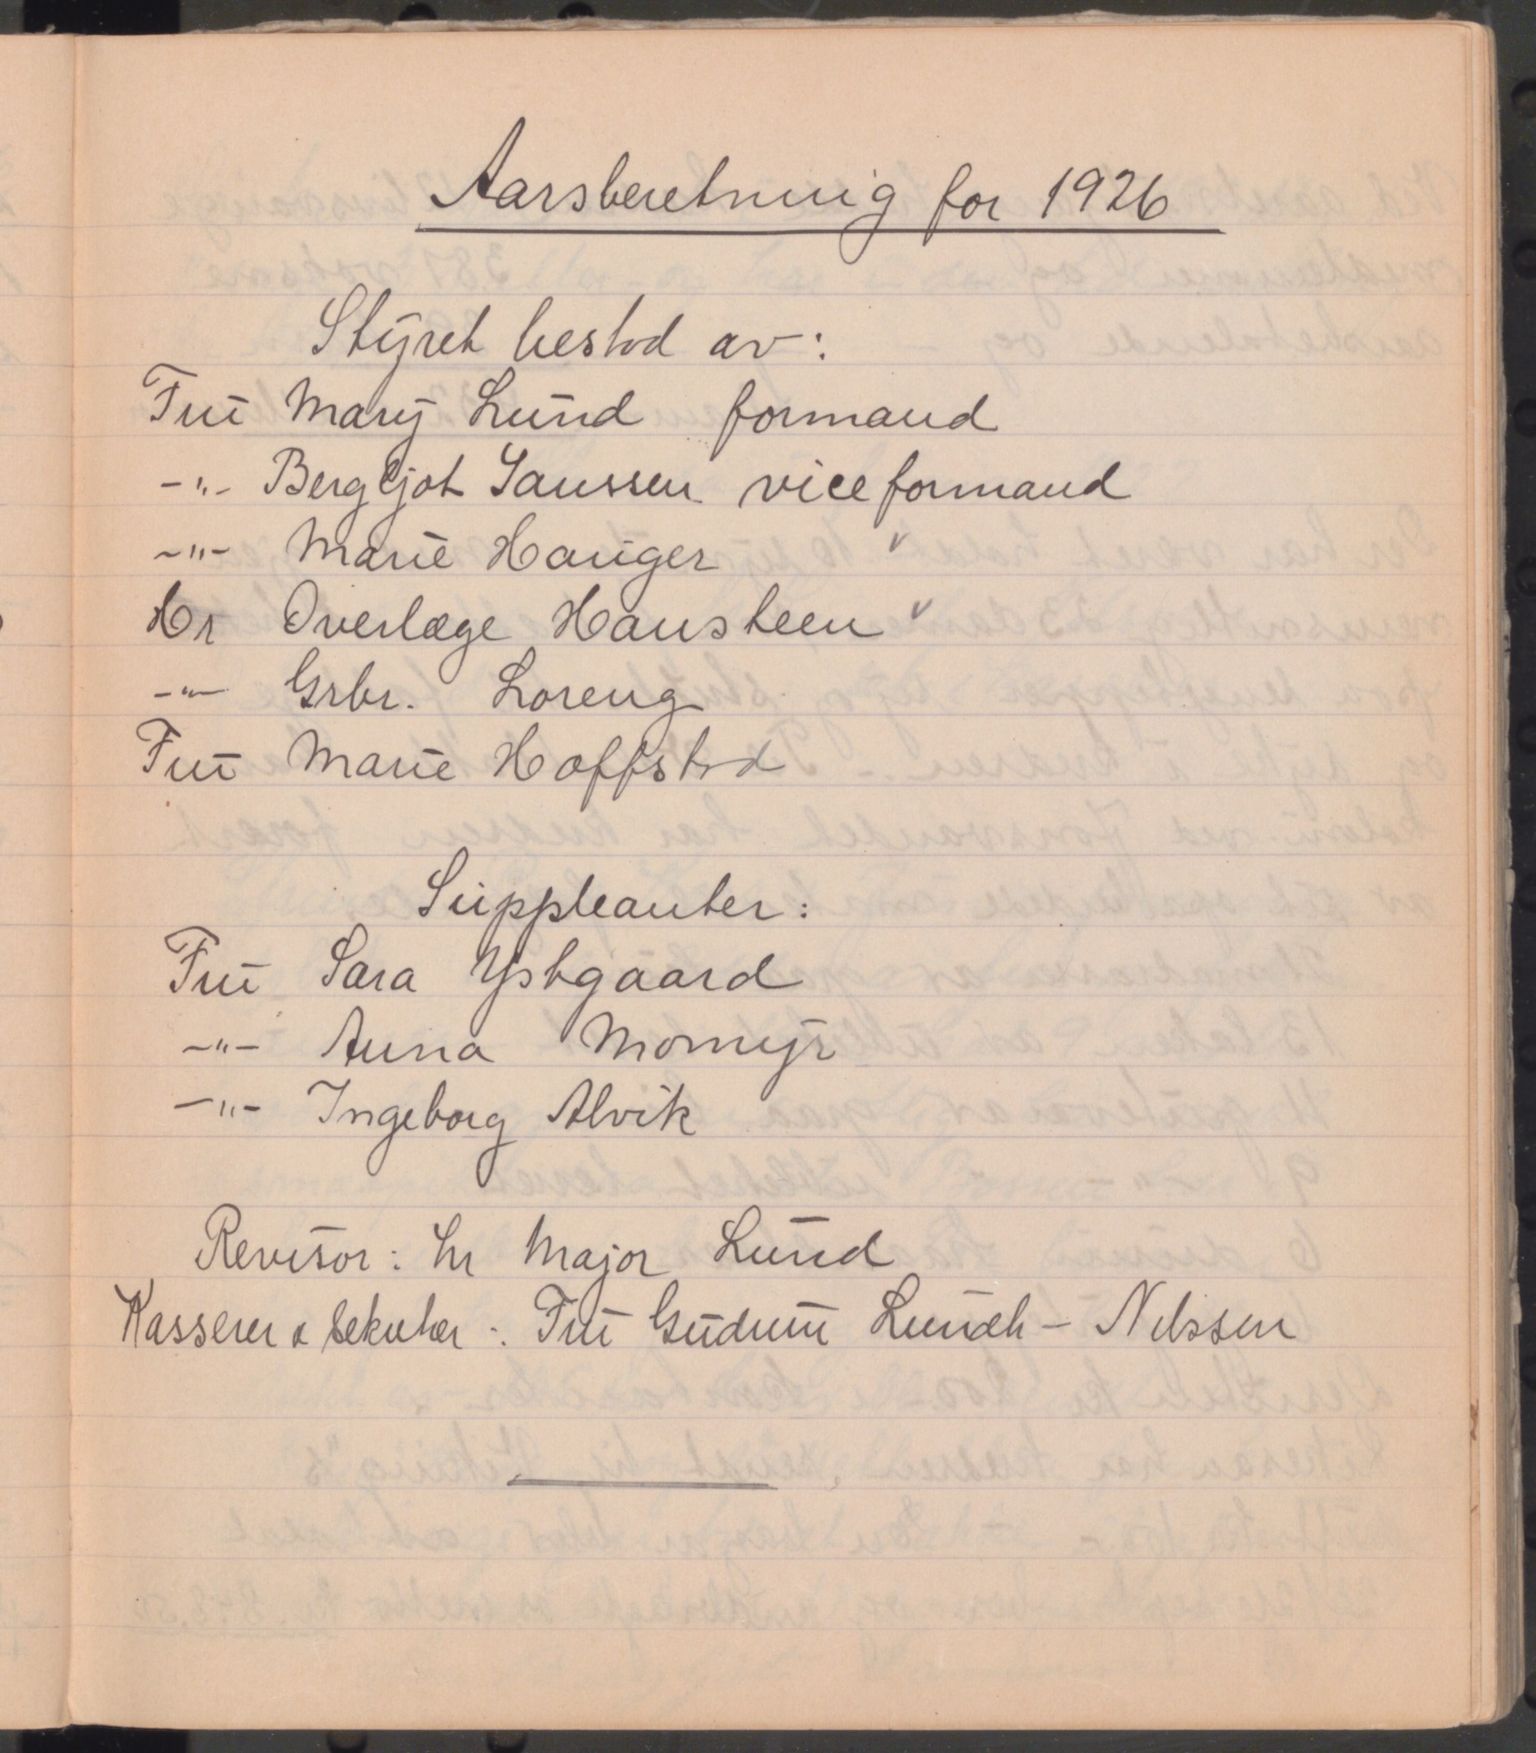 Aarsberetning for 1926
Styret bestod av:
Fru Mary Lund formand
-"- Bergljot Janssen viceformand
-"- Marie Hauger
Hr Overlæge Hansteen
-"- Grbr. Loreng
Fru Marie Hoffstad
Suppleanter:
Fru Sara Ystgaard
-"- Anna Momyr
-"- Ingeborg Alvik
Revisor: hr Major Lund
Kasserer & Sekretær: Fru Gudrun Lundh-Nilssen